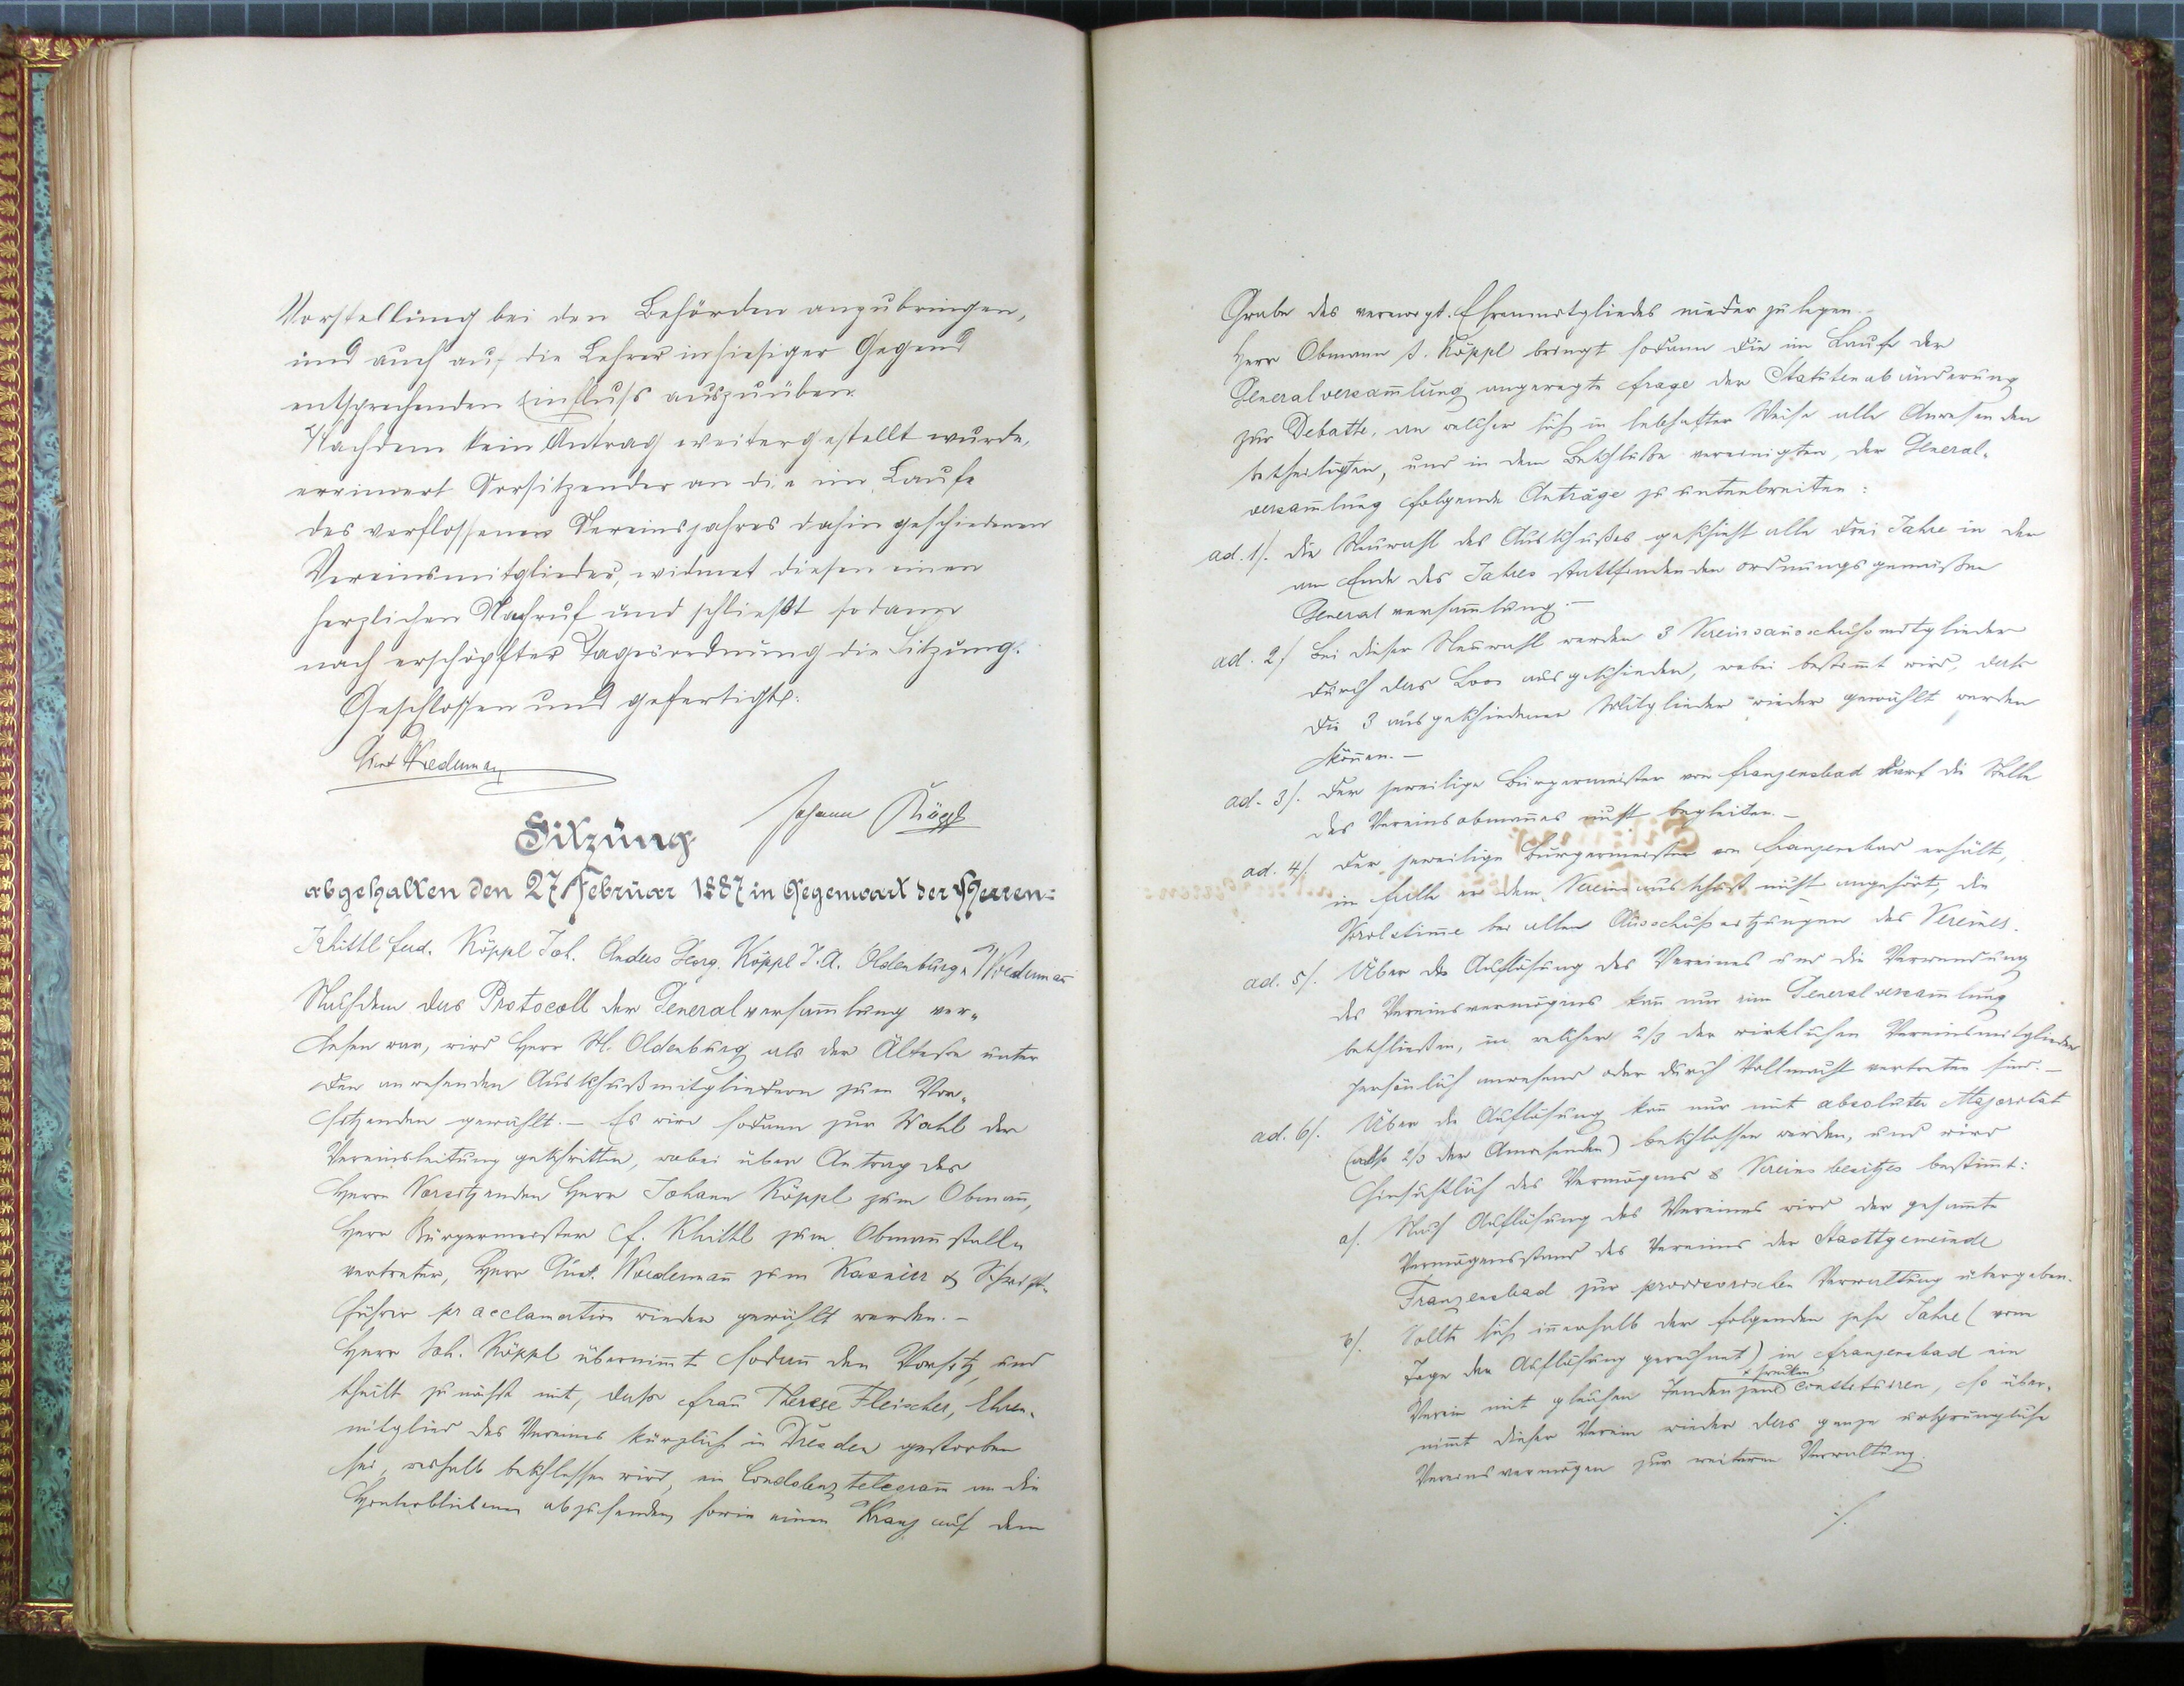 Vorstellung bei den Behörden anzubringen,
und auch auf die Lehrer in hiesiger Gegend
entsprechenden Einfluß auszuüben.
Nachdem kein Antrag weiter gestellt wurde,
erinnert Vorsitzender an die im Laufe
des verflossenen Vereinsjahres dahin geschiedenen
Vereinsmitglieder, widmet diesen einen
herzlichen Nachruf und schließt sodann
nach erschöpfter Tagesordnung die Sitzung.
Geschlossen und gefertigt:
Gust Wiedermann
Johann Köppl
Sitzung
abgehalten den 27 Februar 1887 in Gegenwart der Herren:
Khittl Ferd. Köppl Joh. Anders Georg. Köppl J. A. Oldenburg u Wiedermañ
Nachdem das Protocoll der Generalversam̄lung ver-
lesen war, wird Herr M. Oldenburg als der Älteste unter
den anwesenden Ausschußmitgliedern zum Vor-
sitzenden gewählt. – Es wird sodann zur Wahl der
Vereinsleitung geschritten, wobei über Antrag des
Herrn Vorsitzenden Herr Johann Köppl zum Obmañ,
Herr Bürgermeister F. Khittl zum Obmañstell-
vertreter, Herr Gust. Wiedermañ zum Kassier & Schrift-
führer pr acclamation wieder gewählt werden. –
Herr Joh. Köppl übernim̄t sodañ den Vorsitz und
theilt zunächst mit, dass Frau Therese Fleischer, Ehren-
mitglied des Vereines kürzlich in Dresden gestorben
sei, weshalb beschlossen wird, ein Condolenztelegram̄ an die
Hinterbliebenen abzusenden, sowie einen Kranz auf dem
Grabe des verewigt. Ehrenmitgliedes nieder zu legen. –
Herr Obmann J. Köppl bringt sodann die im Laufe der
Generalversam̄lung angeregte Frage der Statutenabänderung
zur Debatte, an welcher sich in lebhafter Weise alle Anwesenden
betheiligten, und in dem Beschluße vereinigten, der General-
versam̄lung folgende Anträge zu unterbreiten:
ad. 1/. Die Neuwahl des Ausschußes geschieht alle drei Jahre in der
am Ende des Jahres stattfindenden ordnungsgemäßen
Generalversam̄lung. –
ad. 2/ Bei dieser Neuwahl werden 3 Vereinsausschussmitglieder
durch das Loos ausgeschieden, wobei bestim̄t wird, dass
die 3 ausgeschiedenen Mitglieder wieder gewählt werden
köñen. –
ad. 3/. Der jeweilige Bürgermeister von Franzensbad darf die Stelle
des Vereinsobmañes nicht begleiten. –
ad. 4/. Der jeweilige Bürgermeister von Franzensbad erhält,
im Falle er dem Vereinsausschuß nicht angehört, die
Virilstim̄e bei allen Ausschußsitzungen des Vereines.
ad. 5/. Über die Auflösung des Vereines und die Verwendung
des Vereinsvermögens kañ nur eine Generalversam̄lung
beschließen, in welcher 2/3 der wirklichen Vereinsmitglieder
persönlich anwesend oder durch Vollmacht vertreten sind. –
ad. 6/. Über die Auflösung kañ nur mit absoluter Majorität
(also 2/3 der Anwesenden) beschlossen werden, und wird
hinsichtlich des Vermögens & Vereinsbesitzes bestim̄t:
a/. Nach Auflösung des Vereines wird der gesam̄te
Vermögensstand des Vereines der Stadtgemeinde
Franzensbad zur provisorischen Verwaltung übergeben.
b/. Sollte sich iñerhalb der folgenden zehn Jahre (vom
Tage der Auflösung gerechnet) in Franzensbad ein
Verein mit gleichen Tendenzen constituiren, so über-
nim̄t dieser Verein wieder das ganze ursprüngliche
Vereinsvermögen zur weiteren Verwaltung.
./.